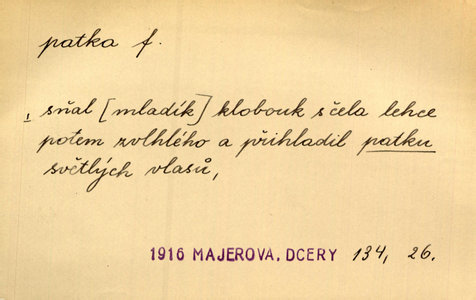 patka f.
, sňal [mladík] klobouk s čela lehce
potem zvlhlého a přihladil patku
světlých vlasů,
1916 MAJEROVA, DCERY 134, 26.